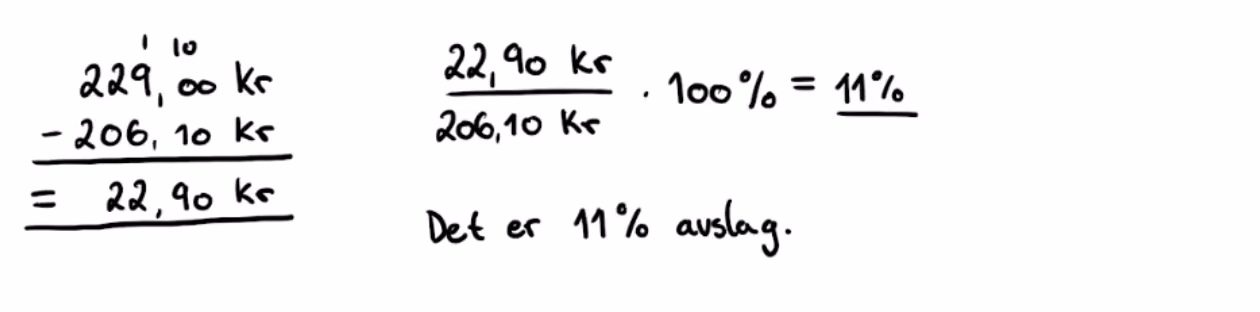 1 10
229,00 kr
- 206,10 kr
= 22,90 kr
22,90 kr
206,10 kr
· 100% = 11%
Det er 11% avslag.